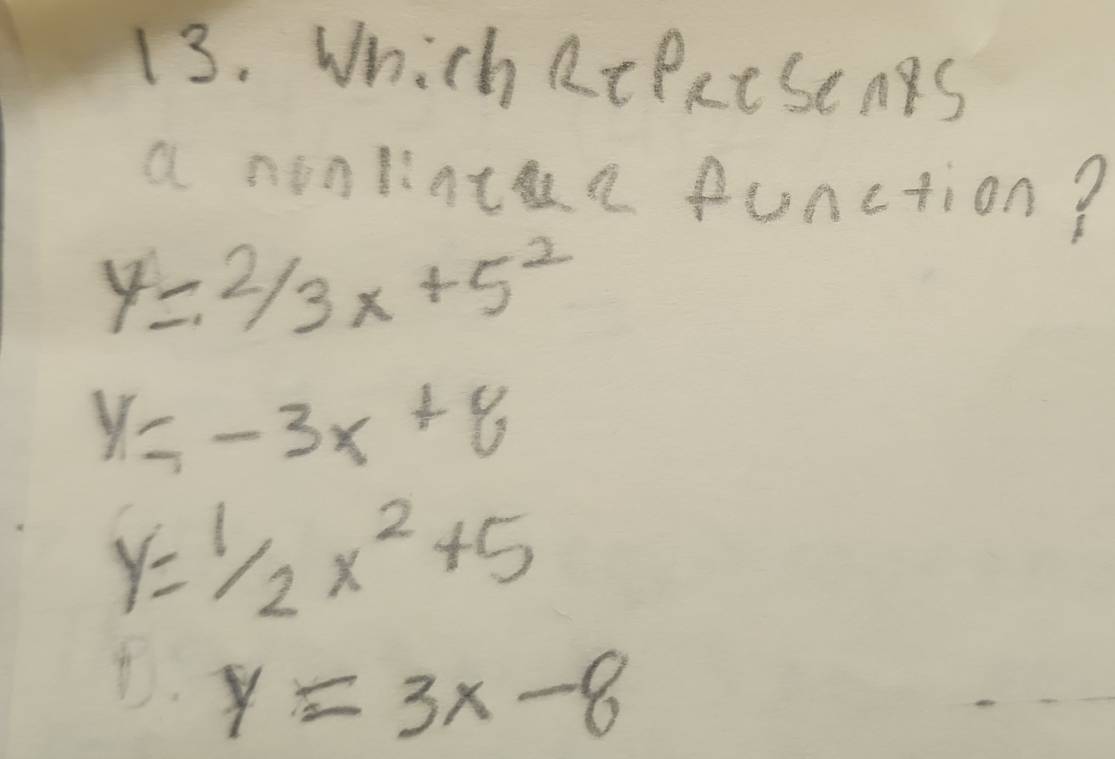 13. Which Represents
a nonlinear function?
y = 2/3x + 5²
y = -3x + 8
y = 1/2 x² + 5
D. y = 3x - 8